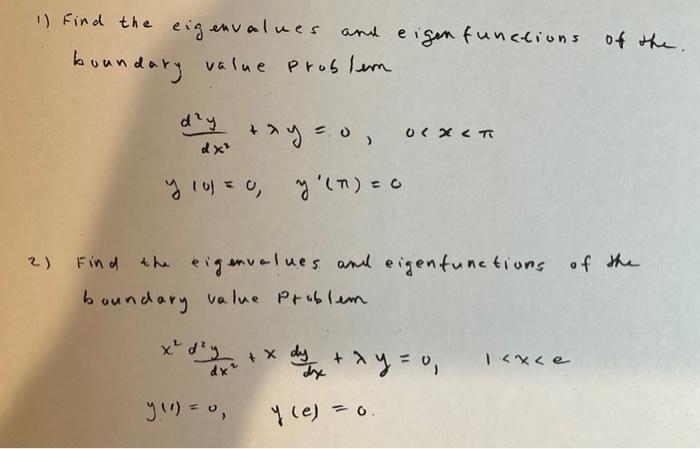 1) Find the eigenvalues and eigenfunctions of the.
boundary value problem
d²y/dx² + λy = 0, 0 < x < π
y(0) = 0, y'(π) = 0
2) Find the eigenvalues and eigenfunctions of the
boundary value problem
x² d²y/dx² + x dy/dx + λy = 0, 1 < x < e
y(1) = 0, y(e) = 0.